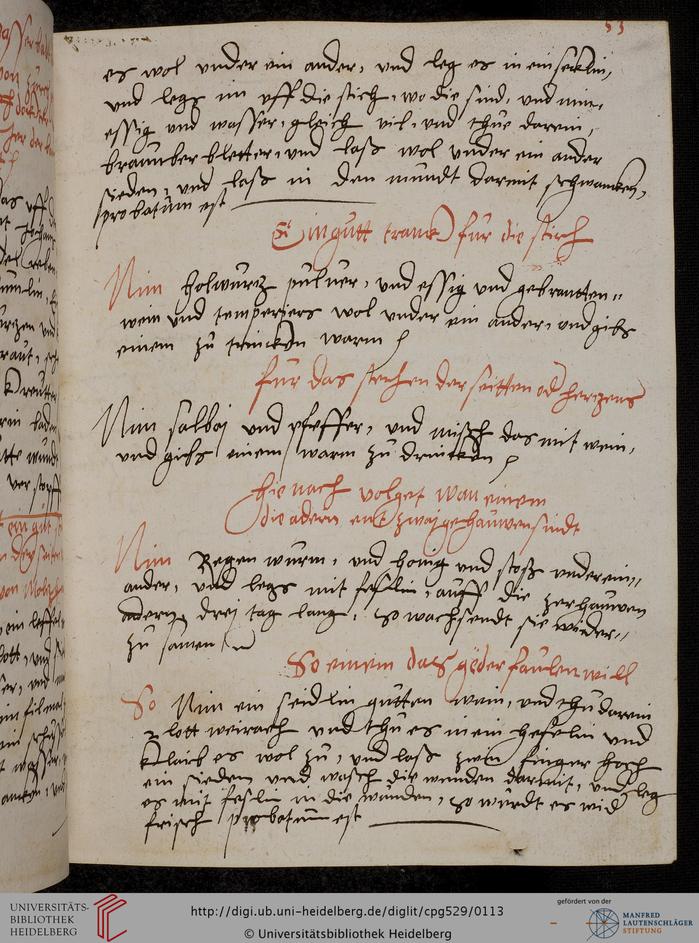 53
es wol vnder ein ander, vnd leg es in ein secklin,
vnd legs im vff die stich, wo die sind, vnd nim,
essig vnd wasser, gleich vil, vnd thüe darein,
braunber bletter, vnd lass wol vnder ein ander
sieden, vnd lass in den mundt darmit schwancken,
probatum est
Ein gutt tranck für die stich
Nim holwurtz puluer, vnd essig vnd gebrantten
wein vnd temperiers wol vnder ein ander, vnd gibs
einem zu trincken warm
für das stechen der seitten od hertzens
Nim salbaj vnd pfeffer, vnd misch das mit wein,
vnd gibs einem warm zu drincken
hie nach volget wan einem
die adern entzwaj gehauwen sindt
Nim Regen würm, vnd honig vnd stoss vnderein
ander, vnd legs mit feslin, auff die zerhauwen
adern, drej tag lang, so wachsendt sie wieder
zu samen
So einem das geder faulen will
So Nim ein seidlin gutten wein, vnd thu darein
2 lott weirach vnd thu es in ein hefelin vnd
kleib es wol zu, vnd lass zwen finger hoch
ein sieden vnd wasch die wunden darmit, vnd leg
es mit feslin in die wunden, so würdt es wid
frisch probatum est
UNIVERSITÄTS-
BIBLIOTHEK
HEIDELBERG
http://digi.ub.uni-heidelberg.de/diglit/cpg529/0113
© Universitätsbibliothek Heidelberg
gefördert von der
MANFRED
LAUTENSCHLÄGER
STIFTUNG